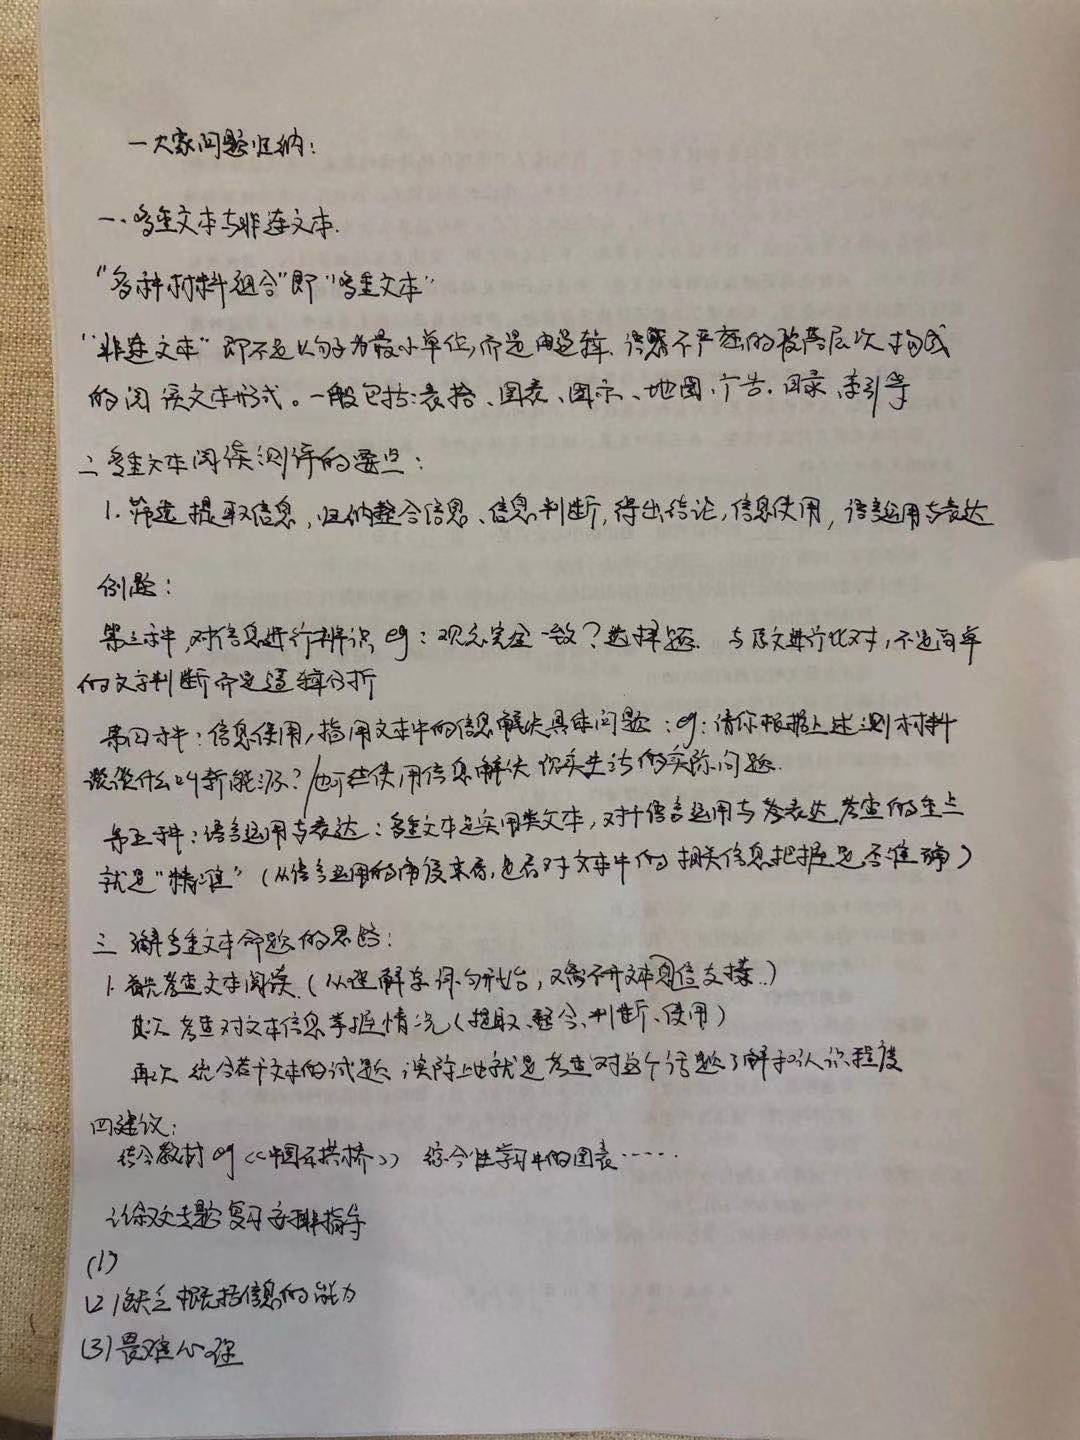 一大家问题归纳:
一.多重文本与非连文本.
"多种材料组合"即"多重文本"
"非连文本"即不是以句子为最小单位,而是由逻辑、语感不严密的段落层次构成
的阅读文本形式。一般包括:表格、图表、图示、地图、广告、目录、索引等
二多重文本阅读测评的要点:
1.筛选提取信息,归纳整合信息、信息判断,得出结论,信息使用,语言运用与表达
例题:
第三种,对信息进行辨识,eg:观念完全一致?选择题. 与原文进行比对,不是简单
的文字判断而是逻辑分析
第四种:信息使用,指用文本中的信息解决具体问题:eg:请你根据上述测材料
谈谈什么叫新能源?也可让使用信息解决现实生活的实际问题.
第五种:语言运用与表达:多重文本是实用类文本,对于语言运用与表达考查的重点
就是"精准"(从语言运用的角度来看,是否对文本中的相关信息把握是否准确)
三 解多重文本命题的思路:
1.首先考查文本阅读.(从理解字词句开始,又离不开文本的支撑.)
其次 考查对文本信息掌握情况(提取、整合、判断、使用)
再次 统合若干文本的试题,实际上也就是考查对这个话题了解和认识程度
四建议:
结合教材eg《中国石拱桥》 综合性学习中的图表……
议论文专题复习安排指导
(1)
(2)缺乏概括信息的能力
(3)畏难心理